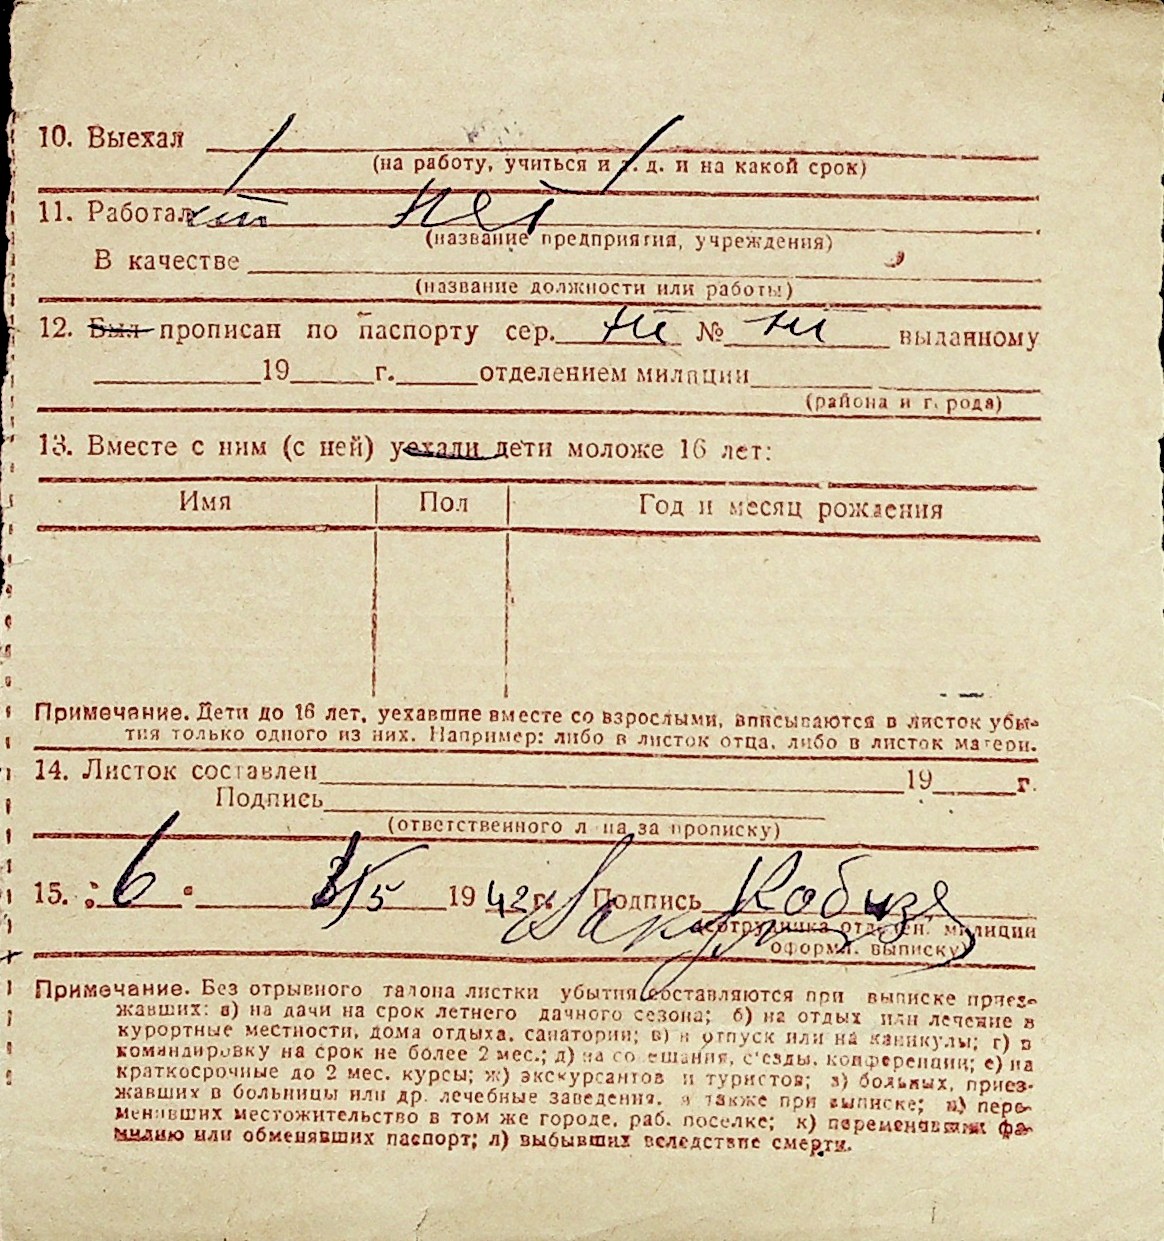 10. Выехал
(на работу, учиться и т. д. и на какой срок)
11. Работал нет нет
(название предприятия, учреждения)
В качестве
(название должности или работы)
12. Был прописан по паспорту сер. нет № нет выданному
19 г. отделением милиции
(района и города)
13. Вместе с ним (с ней) уехали дети моложе 16 лет:
Имя Пол Год и месяц рождения
Примечание. Дети до 16 лет, уехавшие вместе со взрослыми, вписываются в листок убы-
тия только одного из них. Например: либо в листок отца, либо в листок матери.
14. Листок составлен 19 г.
Подпись
(ответственного лица за прописку)
15. 6 5 1942 г. Подпись
(сотрудника отделен. милиции
оформл. выписку)
Примечание. Без отрывного талона листки убытия составляются при выписке приез-
жавших: а) на дачи на срок летнего дачного сезона; б) на отдых или лечение в
курортные местности, дома отдыха, санатории; в) в отпуск или на каникулы; г) в
командировку на срок не более 2 мес.; д) на совещания, с'езды, конференции; е) на
краткосрочные до 2 мес. курсы; ж) экскурсантов и туристов; з) больных, приез-
жавших в больницы или др. лечебные заведения, а также при выписке; и) пере-
менивших местожительство в том же городе, раб. поселке; к) переменивших фа-
милию или обменявших паспорт; л) выбывших вследствие смерти.